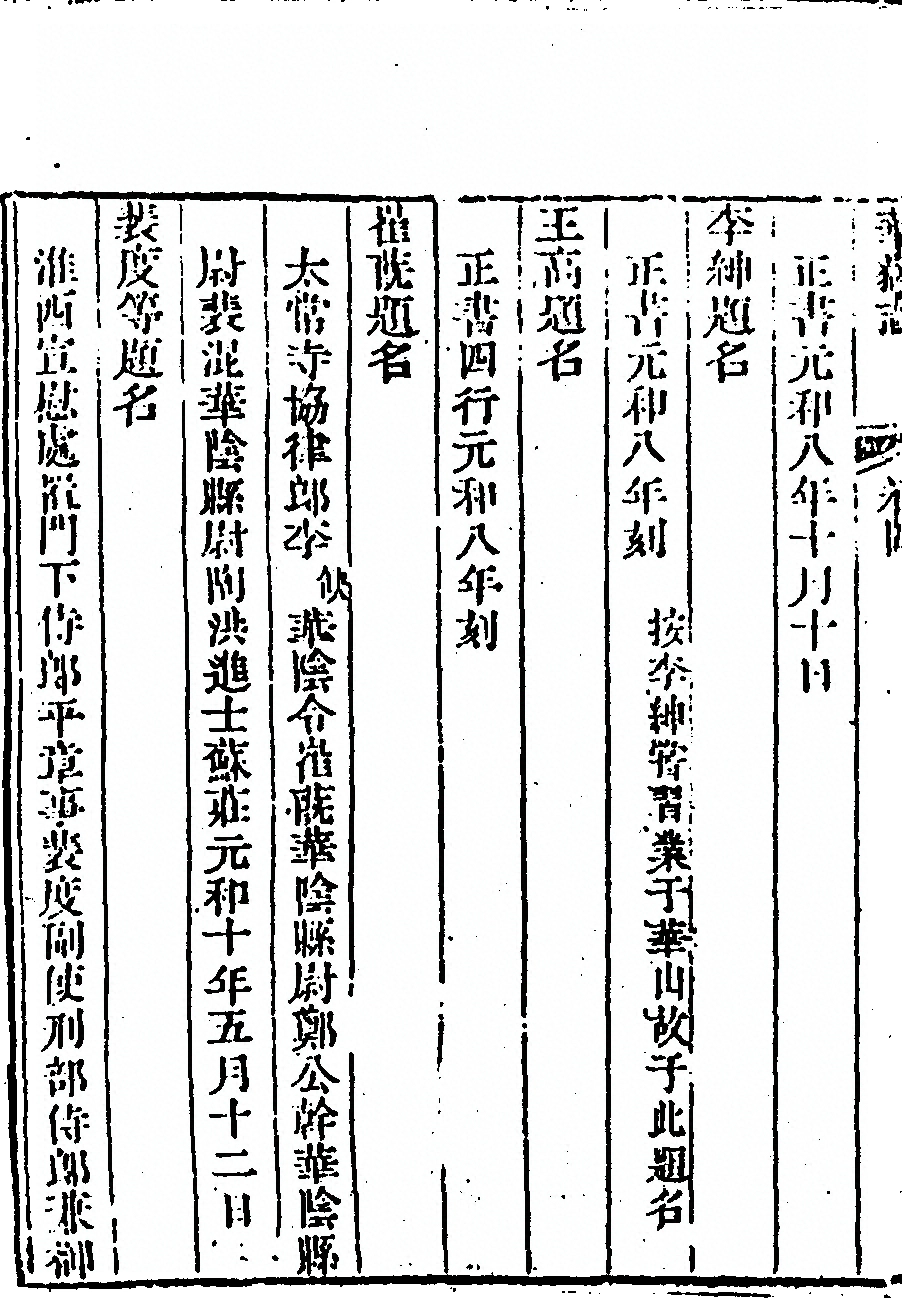 正書元和八年十月十日
李紳題名
正書元和八年刻　按李紳嘗習業于華山故于此題名
王高題名
正書四行元和八年刻
崔旣題名
太常寺協律郎李　華陰令崔旣華陰縣尉鄭公幹華陰縣
尉裴混華陰縣尉陶洪進士蘇莊元和十年五月十二日
裴度等題名
淮西宣慰處置門下侍郎平章事裴度副使刑部侍郎兼御